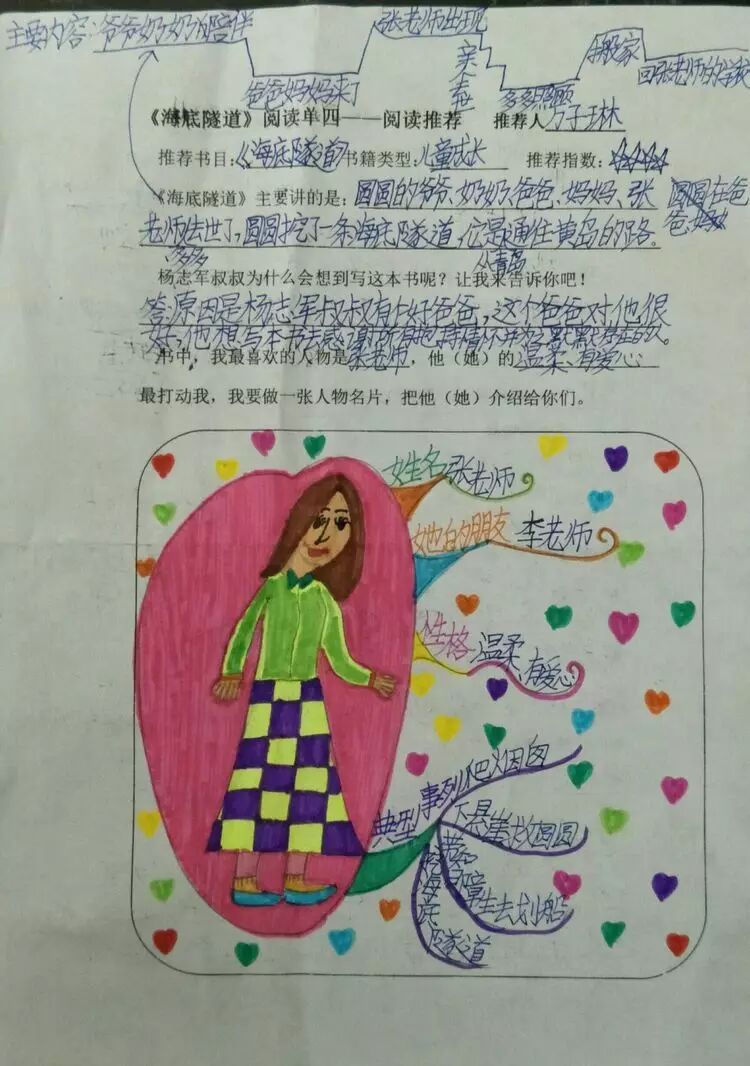 主要内容:爷爷奶奶的陪伴
爸爸妈妈来了
张老师出现
亲人去世
多多照顾
搬家
回张老师的学校
《海底隧道》阅读单四——阅读推荐 推荐人方子琳
推荐书目:《海底隧道》书籍类型:儿童成长 推荐指数:☆☆☆☆
《海底隧道》主要讲的是:圆圆的爷爷、奶奶、爸爸、妈妈、张 圆圆在爸
老师去世了,圆圆挖了一条海底隧道,它是通往黄岛的路。 爸、妈妈
多多 从青岛
杨志军叔叔为什么会想到写这本书呢?让我来告诉你吧!
答:原因是杨志军叔叔有个好爸爸,这个爸爸对他很
好,他想写本书去感谢所有抱持情怀并为了默默存在的人。
书中,我最喜欢的人物是张老师,他(她)的温柔、有爱心
最打动我,我要做一张人物名片,把他(她)介绍给你们。
姓名 张老师
她的朋友 李老师
性格 温柔、有爱心
典型事列 爬烟囱
下悬崖救圆圆
和学生去划船
海底隧道